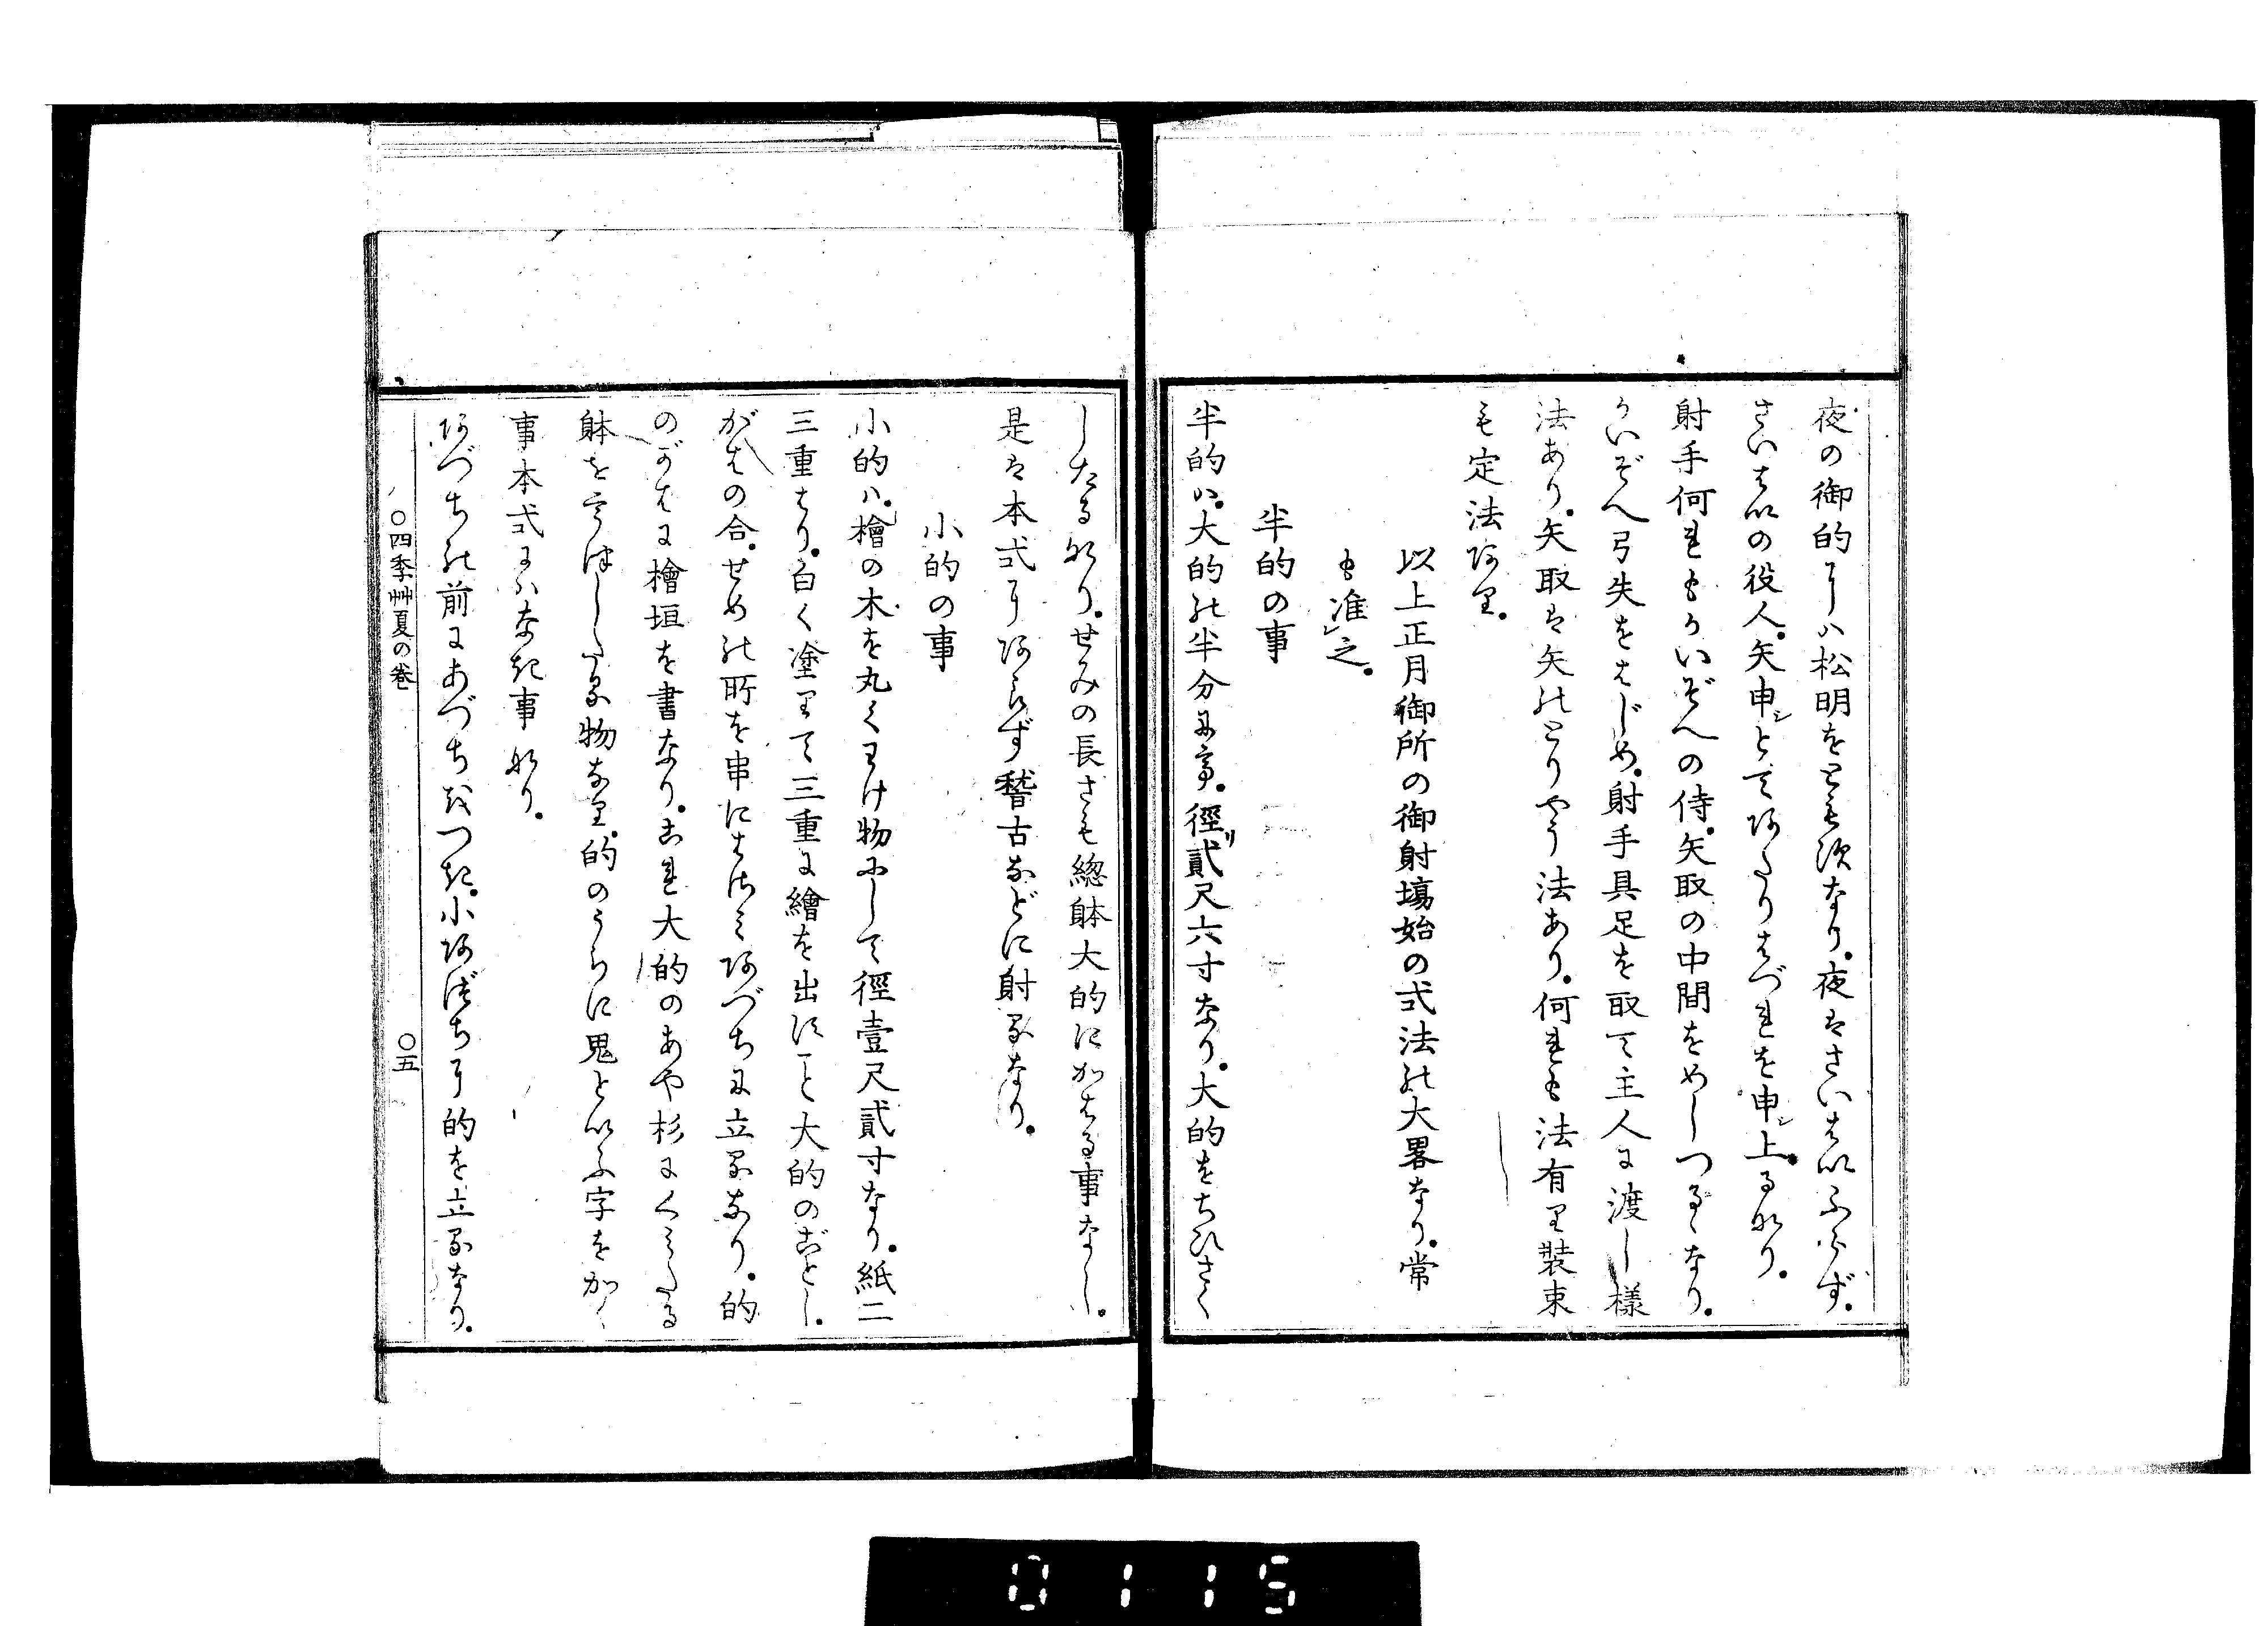 夜の御的にハ松明をともすなり。夜はさいはいふらず。
さいはいの役人。矢申シとてあたりはづれを申シ上るなり。
射手何れもかいぞへの侍。矢取の中間をめしつるゝなり。
かいぞへ弓矢をはじめ。射手具足を取て主人に渡し様
法あり。矢取は矢のとりやう法あり。何れも法有り装束
も定法あり。
以上正月御所の御射場始の式法の大畧なり。常
も准レ之。
半的の事
半的ハ。大的の半分の事。徑リ貳尺六寸なり。大的をちひさく
したるなり。せみの長さも総躰大的にかはる事なし。
是は本式にあらず稽古などに射るなり。
小的の事
小的ハ。檜の木を丸くわけ物にして徑壹尺貳寸なり。紙二
三重はり。白く塗りて三重に繪を出すこと大的のごとし。
がはの合。せめの所を串にはさみあづちに立るなり。的
のがはに檜垣を書なり。これ大的のあや杉にくみたる
躰をうつしたる物なり。的のうらに鬼といふ字をかく
事本式にハなき事なり。
あづちの前にあづちをつき。小あづちに的を立るなり。
○四季艸夏の巻
○五
0115